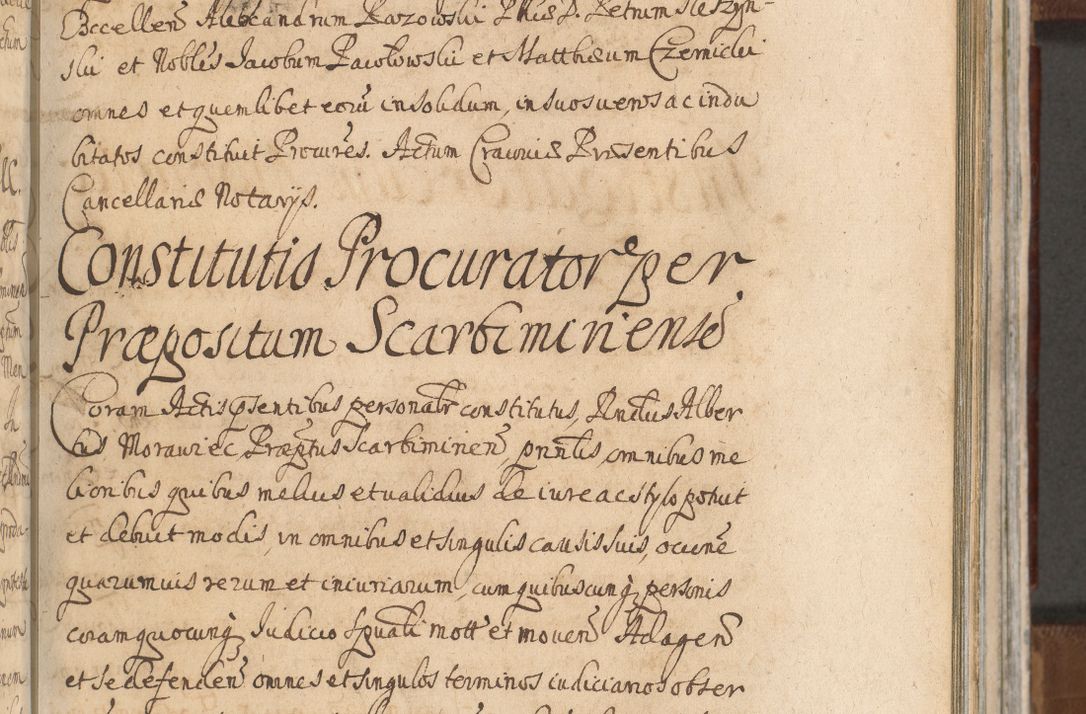 Excellen Alexandrum Razowski Phiæ D. Petrum Sleszyn-
ski et Nobles Jacobum Pacołowski et Matthæum Czernicki
omnes et quemlibet eorũ in solidum, in suos veros ac indu
bitatos constituit Procures. Actum Cracoviæ Præsentibus
Cancellariæ Notarijs.
Constitutio Procurator per
Præpositum Scarbimiriense
Coram Actis psentibus personalr constitutus, Rndus Alber
tus Morawiec Præptus Scarbimirien, pnntis, omnibus me
lioribus quibus melius et validius de iure ac stylo potuit
et debuit modis, in omnibus et singulis causis suis, occne
quarumvis rerum et iniuriarum, cum quibuscunq personis
coram quocunq Judicio spuali mott et moven Ad agen
et se defenden omnes et singulos terminos iudiciarios obser